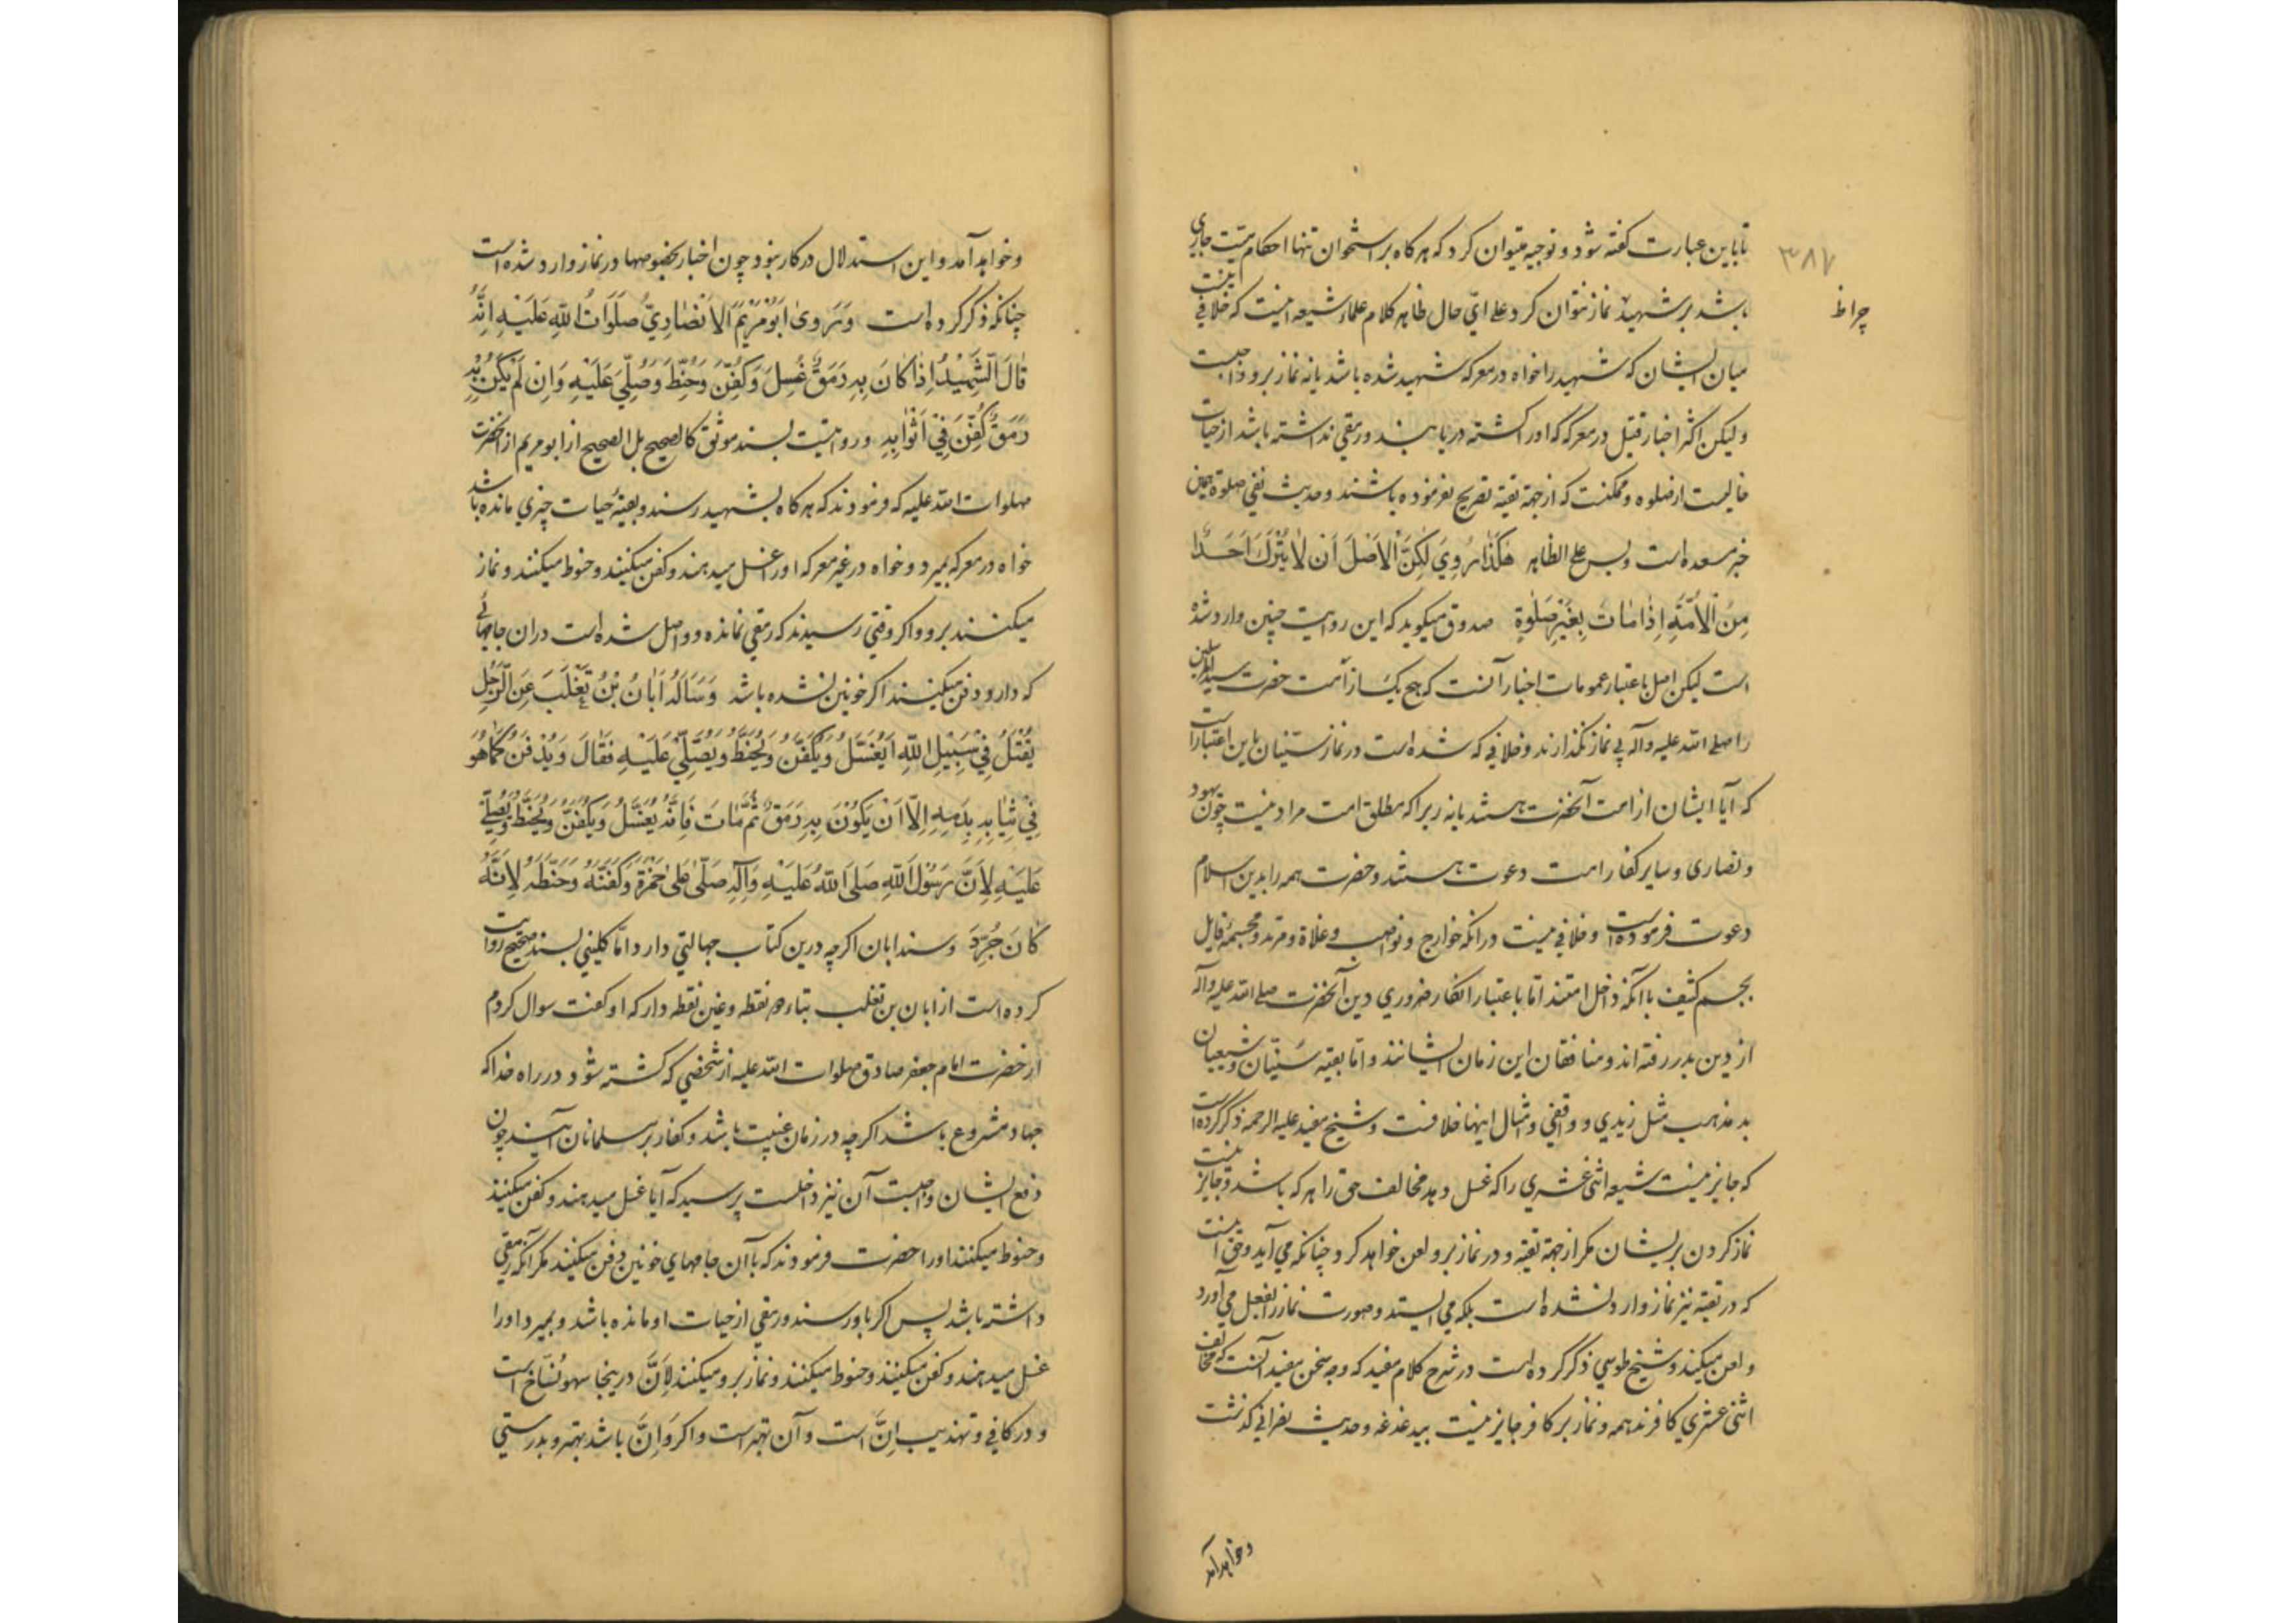 ۳۸۷
چراط
تا باین عبارت کفته شود و توجیه میتوان کرد که هر کاه بر استخوان تنها احکام میت جاری
باشد بر شهید نماز نتوان کرد و علی ایّ حال ظاهر کلام علماء شیعه اینست که خلافی نیست
میان ایشان که شهید را خواه در معرکه شهید شده باشد یا نه نماز برو واجبست
و لیکن اکثر اخبار قتیل در معرکه که او را کشته دریابند و رمقی نداشته باشد از حیات
خالیست از صلوه و ممکنست که از جهة تقیه تصریح نفرموده باشند و حدیث نفی صلوة همین
خبر مسعده است و بس علی الظاهر هٰکَذٰا رُوِيَ لٰکِنَّ اْلاَصْلَ اَنْ لاٰ یُتْرَکَ اَحَدٌا
مِنَ الْاُمَّةِ اِذٰا مٰاتَ بِغَیْرِ صَلٰوةٍ صدوق میکوید که این روایت چنین وارد شده
است لیکن اصل باعتبار عمومات اخبار آنست که هیچ یک از امت حضرت سید المرسلین
را صلی الله علیه و آله بی نماز نکذارند و خلافی که شده است در نماز سنّیان باین اعتبار است
که آیا ایشان از امت آنحضرت هستند یا نه زیرا که مطلق امت مراد نیست چون یهود
و نصاری و سایر کفار امت دعوت هستند و حضرت همه را بدین اسلام
دعوت فرموده است و خلافی نیست در آنکه خوارج و نواصب و غلاة و مرتد و مجسمهٔ قایل
بجسم کثیف با آنکه داخل امتند امّا باعتبار انکار ضروری دین آنحضرت صلی الله علیه و آله
از دین بدر رفته اند و منافقان این زمان ایشانند و امّا بقیه سنّیان و شیعیان
بد مذهب مثل زیدی و واقفی و امثال اینها خلافست و شیخ مفید علیه الرحمه ذکر کرده است
که جایز نیست شیعه اثنی عشری را که غسل دهد مخالف حق را هر که باشد و جایز نیست
نماز کردن بر ایشان مکر از جهة تقیه و در نماز برو لعن خواهد کرد چنانکه می آید و حق آنست
که در تقیه نیز نماز وارد نشده است بلکه می ایستد و صورت نماز را بفعل می آورد
و لعن میکند و شیخ طوسی ذکر کرده است در شرح کلام مفید که وجه سخن مفید آنست که مخالف
اثنی عشری کافرند همه و نماز بر کافر جایز نیست بیدغدغه و حدیث نصرانی کذشت
و خواهد آمد
و خواهد آمد و این استدلال در کار نبود چون اخبار بخصوصها در نماز وارد شده است
چنانکه ذکر کرده است وَ رَویٰ اَبُوْ مَرْیَمَ الْاَنْصٰارِيُّ صَلَوَاتُ اللهِ عَلَیْهِ اَنَّهُ
قٰالَ الشَّهِیْدُ اِذٰا کٰانَ بِهِ رَمَقٌ غُسِلَ وَ کُفِّنَ وَ حُنِّطَ وَ صُلِّيَ عَلَیْهِ وَ اِنْ لَمْ یَکُنْ بِهِ
رَمَقٌ کُفِّنَ فِيْ اَثْوٰابِهِ و روایتست بسند موثق کالصحیح بل الصحیح از ابو مریم از آنحضرت
صلوات الله علیه که فرمودند که هر کاه بشهید رسند و بقیهٔ حیات چیزی مانده باشد
خواه در معرکه بمیرد و خواه در غیر معرکه او را غسل میدهند و کفن میکنند و حنوط میکنند و نماز
میکنند برو و اکر وقتی رسیدند که رمقی نمانده و واصل شده است در آن جامهائی
که دارد دفن میکنند اکر خونین نشده باشد وَ سَاَلَهُ اَبٰانُ بْنُ تَغْلَبَ عَنِ الرَّجُلِ
یُقْتَلُ فِيْ سَبِیْلِ اللهِ اَیُغْسَّلُ وَ یُکَفَّنُ وَ یُحَنَّطُ وَ یُصَلّٰي عَلَیْهِ فَقٰالَ وَ یُدْفَنُ کَمٰا هُوَ
فِيْ ثِیٰابِهِ بِدَمِهِ اِلّٰا اَنْ یَکُوْنَ بِهِ رَمَقٌ ثُمَّ مٰاتَ فَاِنَّهُ یُغَسَّلُ وَ یُکَفَّنُ وَ یُحَنَّطُ وَ یُصَلّٰي
عَلَیْهِ لِاَنَّ رَسُوْلَ اللهِ صَلَّی اللهُ عَلَیْهِ وَ آلِهِ صَلّٰی عَلٰی حَمْزَةَ وَ کَفَّنَهُ وَ حَنَّطَهُ لِاَنَّهُ
کٰانَ جُرِّدَ و سند ابان اکرچه درین کتاب جهالتی دارد امّا کلینی بسند صحیح روایت
کرده است از ابان بن تغلب بتاء دو نقطه و غین نقطه دار که او کفت سوال کردم
از حضرت امام جعفر صادق صلوات الله علیه از شخصی که کشته شود در راه خدا که
جهاد مشروع باشد اکرچه در زمان غیبت باشد و کفار بر سلمانان آیند چون
دفع ایشان واجبست آن نیز داخلست پرسید که آیا غسل میدهند و کفن میکنند
و حنوط میکنند او را حضرت فرمودند که با آن جامهای خونین دفن میکنند مکر آنکه رمقی
داشته باشد پس اکر باو رسند و رمقی از حیات او مانده باشد و بمیرد او را
غسل میدهند و کفن میکنند و حنوط میکنند و نماز برو میکنند لِاَنَّ در ینجا سهو نُسّاخ است
و در کافی و تهذیب اِنَّ است و آن بهتر است و اکر وَ اِنَّ باشد بهتر و بدرستی